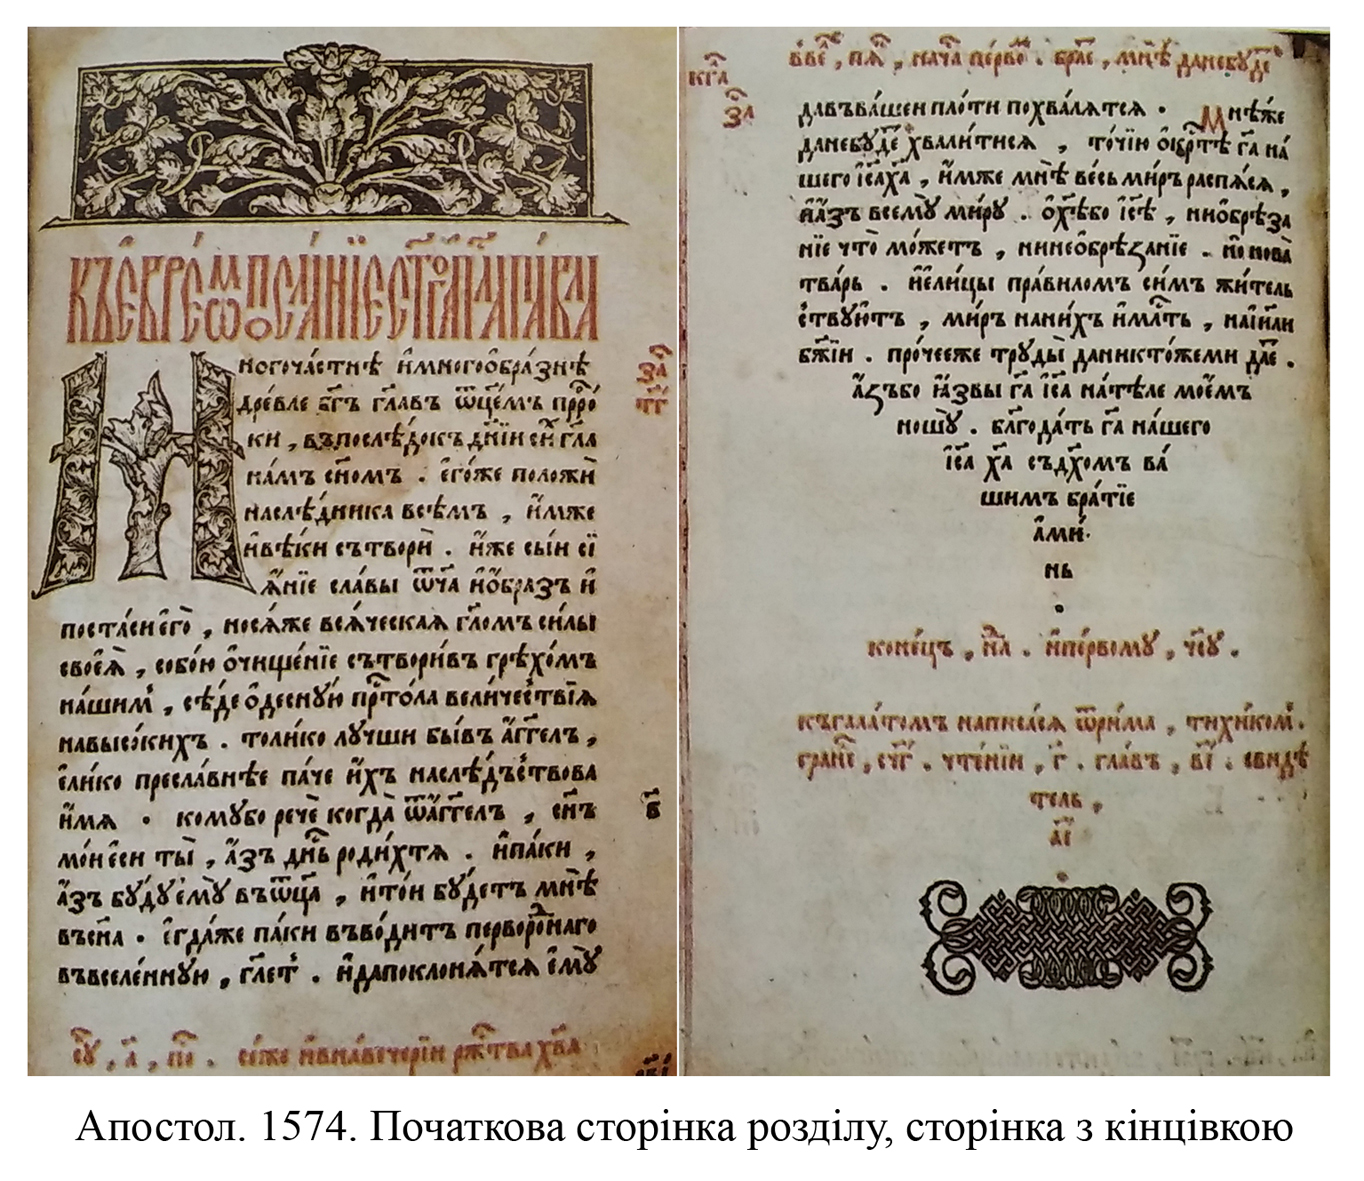 КъЕвреѡмъ посла́нїе ст҃го а҆п҃ла па́вла
Многоча́стнѣ и҆многоѻ҆бра́знѣ
за҃
тг҃
дре́вле бг҃ъ гл҃авъ ѿц҃емъ прⷪ҇ро́
ки , въпослѣ́докъ дн҃їи си́хъ гл҃а
на́мъ сн҃омъ . его́же положѝ
наслѣ́дника всѣ́мъ , и҆́мже
и҆вѣ́ки сътворѝ . и҆́же сы́и сї
ѧ́нїе сла́вы ѿч҃а и҆ѻ҆́бразъ и҆
поста́си е҆го̀ , носѧ́же всѧ́ческаѧ гл҃омъ си́лы
своеѧ̀ , собо́ю ѻ҆чище́нїе сътвори́въ грѣхо́мъ
на́шимъ , сѣ́де ѻ҆десну́ю прⷭ҇то́ла вели́чествїѧ
навысо́кихъ . толи́ко лу́чши бы́въ а҆́гг҃елъ ,
е҆ли́ко пресла́внѣе па́че и҆́хъ наслѣ́дъствова
и҆́мѧ . комубо речѐ когда̀ ѿа҆́гг҃елъ , сн҃ъ
в҃
мо́и еси ты̀ , а҆́зъ дн҃ь роди́хтѧ . и҆па́ки ,
а҆́зъ бу́ду ему̀ въѿц҃а , и҆то́и бу́детъ мнѣ̀
въсн҃а . е҆гда́же па́ки въво́дитъ перворо́днаго
въвселе́нную , гл҃етъ . и҆дапоклонѧ́тсѧ е҆му̀
се́же и҆внавече́рїи ржⷭ҇тва хв҃а
мнѣ̀ данебу́деⷮ
за҃
давъва́шеи пло́ти похва́лѧтсѧ . Мнѣ́же
данебу́деⷮ хвали́тисѧ , то́чїю ѻ҆крⷭ҇тѣ̀ гд҃а на́
шего і҆с҃а х҃а , и҆́мже мнѣ̀ весь ми́ръ распѧ́сѧ ,
и҆а҆́зъ всему̀ ми́ру . ѻ҆х҃ѣбо і҆с҃ѣ , ниѻбрѣ́за
нїе что̀ мо́жетъ , нинеѻбрѣ́занїе . но нова̀
тва́рь . и҆е҆ли́цы пра́виломъ си́мъ жи́тель
ству́ютъ , ми́ръ нани́хъ и҆млⷭ҇ть , наі҆и҃ли
бж҃їи . про́чееже труды̀ даникто́жеми дае́тъ .
а҆́зъбо ꙗ҆́звы гд҃а і҆с҃а натѣ́ле мое́мъ
ношу̀ . благода́ть гд҃а на́шего
і҆с҃а х҃а съдх҃омъ ва́
шимъ бра́тїе
а҆ми́
нь
коне́цъ
къгала́томъ написа́сѧ ѿри́ма , тихи́комъ .
гла́въ , в҃і . свидѣ́
тель ,
а҃і
Апостол. 1574. Початкова сторінка розділу, сторінка з кінцівкою